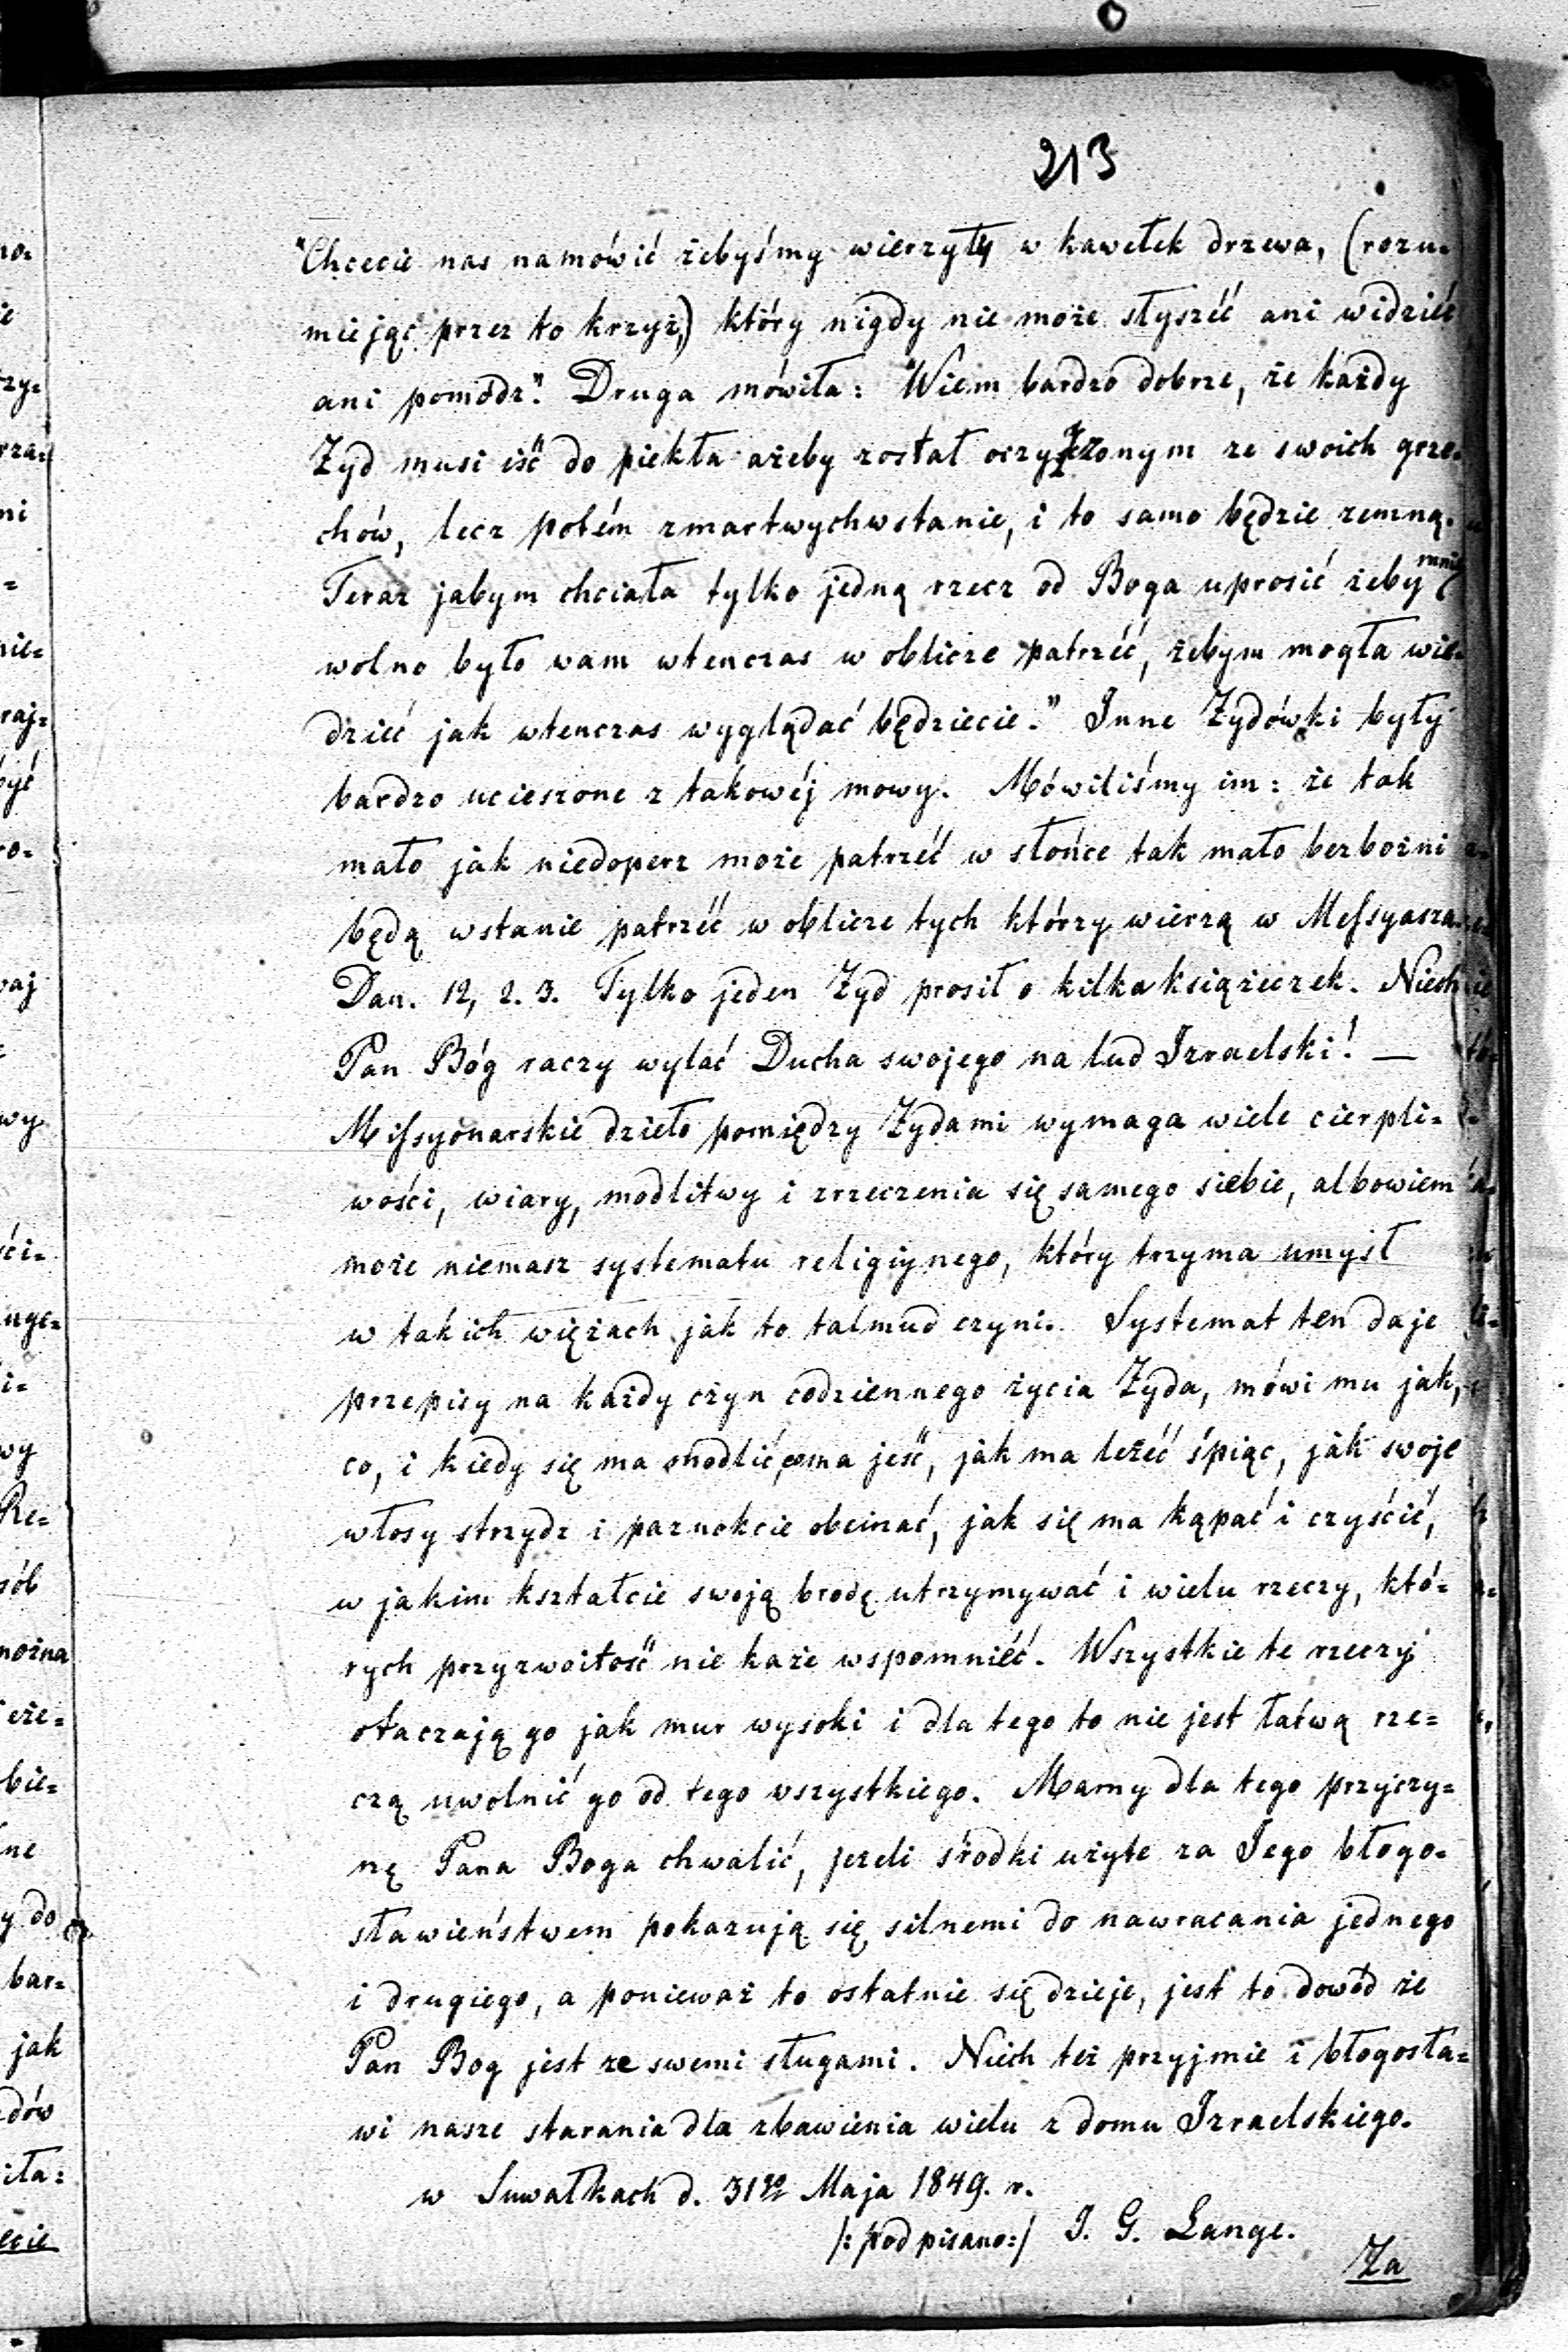 213
"Chcecie nas namówić żebyśmy wierzyły w kawełek drzewa, (rozu-
miejąc przez to krzyż,) który nigdy nie może słyszéć ani widzieć
ani pomódz". Druga mówiła: "Wiem bardzo dobrze, że każdy
Żyd musi iść do piekła ażeby został oczyszczonym ze swoich grze-
chów, lecz potém zmartwychwstanie, i to samo będzie zemną.
Teraz jabym chciała tylko jedną rzecz od Boga uprosić żeby mnie
wolno było wam wtenczas w oblicze patrzéć, żebym mogła wie-
dzieć jak wtenczas wyglądać będziecie." Inne Żydówki były
bardzo ucieszone z takowéj mowy. Mówiliśmy im: że tak
mało jak niedoperz może patrzéć w słońce tak mało bezbożni
będą wstanie patrzéć w oblicze tych którzy wierzą w Messyasza.
Dan. 12, 2. 3. Tylko jeden Żyd prosił o kilka książeczek. Niech
Pan Bóg raczy wylać Ducha swojego na lud Izraelski! —
Missyonarskie dzieło pomiędzy Żydami wymaga wiele cierpli=
wości, wiary, modlitwy i zrzeczenia się samego siebie, albowiem
może niemasz systematu religiynego, który trzyma umysł
w takich więżach jak to talmud czyni. Systemat ten daje
przepisy na każdy czyn codziennego życia Żyda, mówi mu jak,
co, i kiedy się ma modlić, co ma jeść, jak ma leżéć śpiąc, jak swoje
włosy strzydz i paznokcie obcinać, jak się ma kąpać i czyścić,
w jakim kształcie swoją brodę utrzymywać i wielu rzeczy, któ=
rych przyzwoitość nie każe wspomniéć. Wszystkie te rzeczy
otaczają go jak mur wysoki i dla tego to nie jest łatwą rze=
czą uwolnić go od tego wszystkiego. Mamy dla tego przyczy=
nę Pana Boga chwalić, jezeli środki użyte za Jego błogo=
sławieństwem pokazują się silnemi do nawracania jednego
i drugiego, a ponieważ to ostatnie się dzieje, jest to dowód że
Pan Bog jest ze swemi sługami. Niech też przyjmie i błogosła=
wi nasze starania dla zbawienia wielu z domu Izraelskiego.
w Suwałkach d. 31go Maja 1849. r.
/:podpisano:/ J. G. Lange.
Za